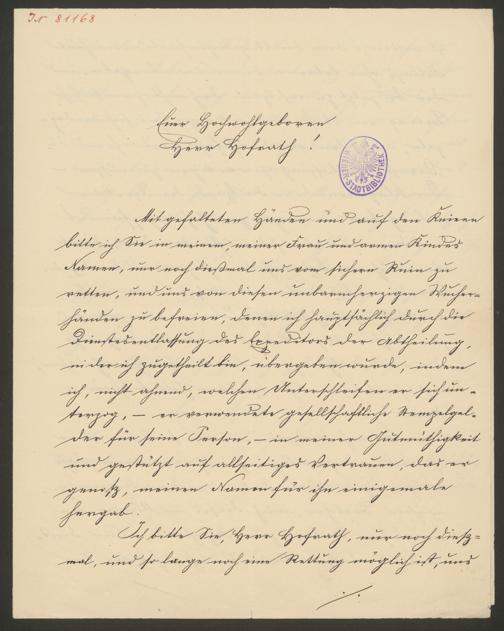 JN 81168
Euer Hochwohlgeboren
Herr Hofrath!
WIENER STADTBIBLIOTHEK
Mit gefalteten Händen und auf den Knieen
bitte ich Sie in meinem, meiner Frau und armen Kindes
Namen, nur noch dießmal uns vom sichern Ruin zu
retten, und uns von diesen unbarmherzigen Wucher-
händen zu befreien, denen ich hauptsächlich durch die
Dienstesentlassung des Expeditors der Abtheilung,
in der ich zugetheilt bin, übergeben wurde, indem
ich, nicht ahnend, welchen Unterschleifen er sich un-
terzog, – er verwendete gesellschaftliche Stempelgel-
der für seine Person, – in meiner Gutmüthigkeit
und gestützt auf allseitiges Vertrauen, das er
genoß, meinen Namen für ihn einigemale
hergab.
Ich bitte Sie, Herr Hofrath, nur noch dieß-
mal, und so lange noch eine Rettung möglich ist, uns